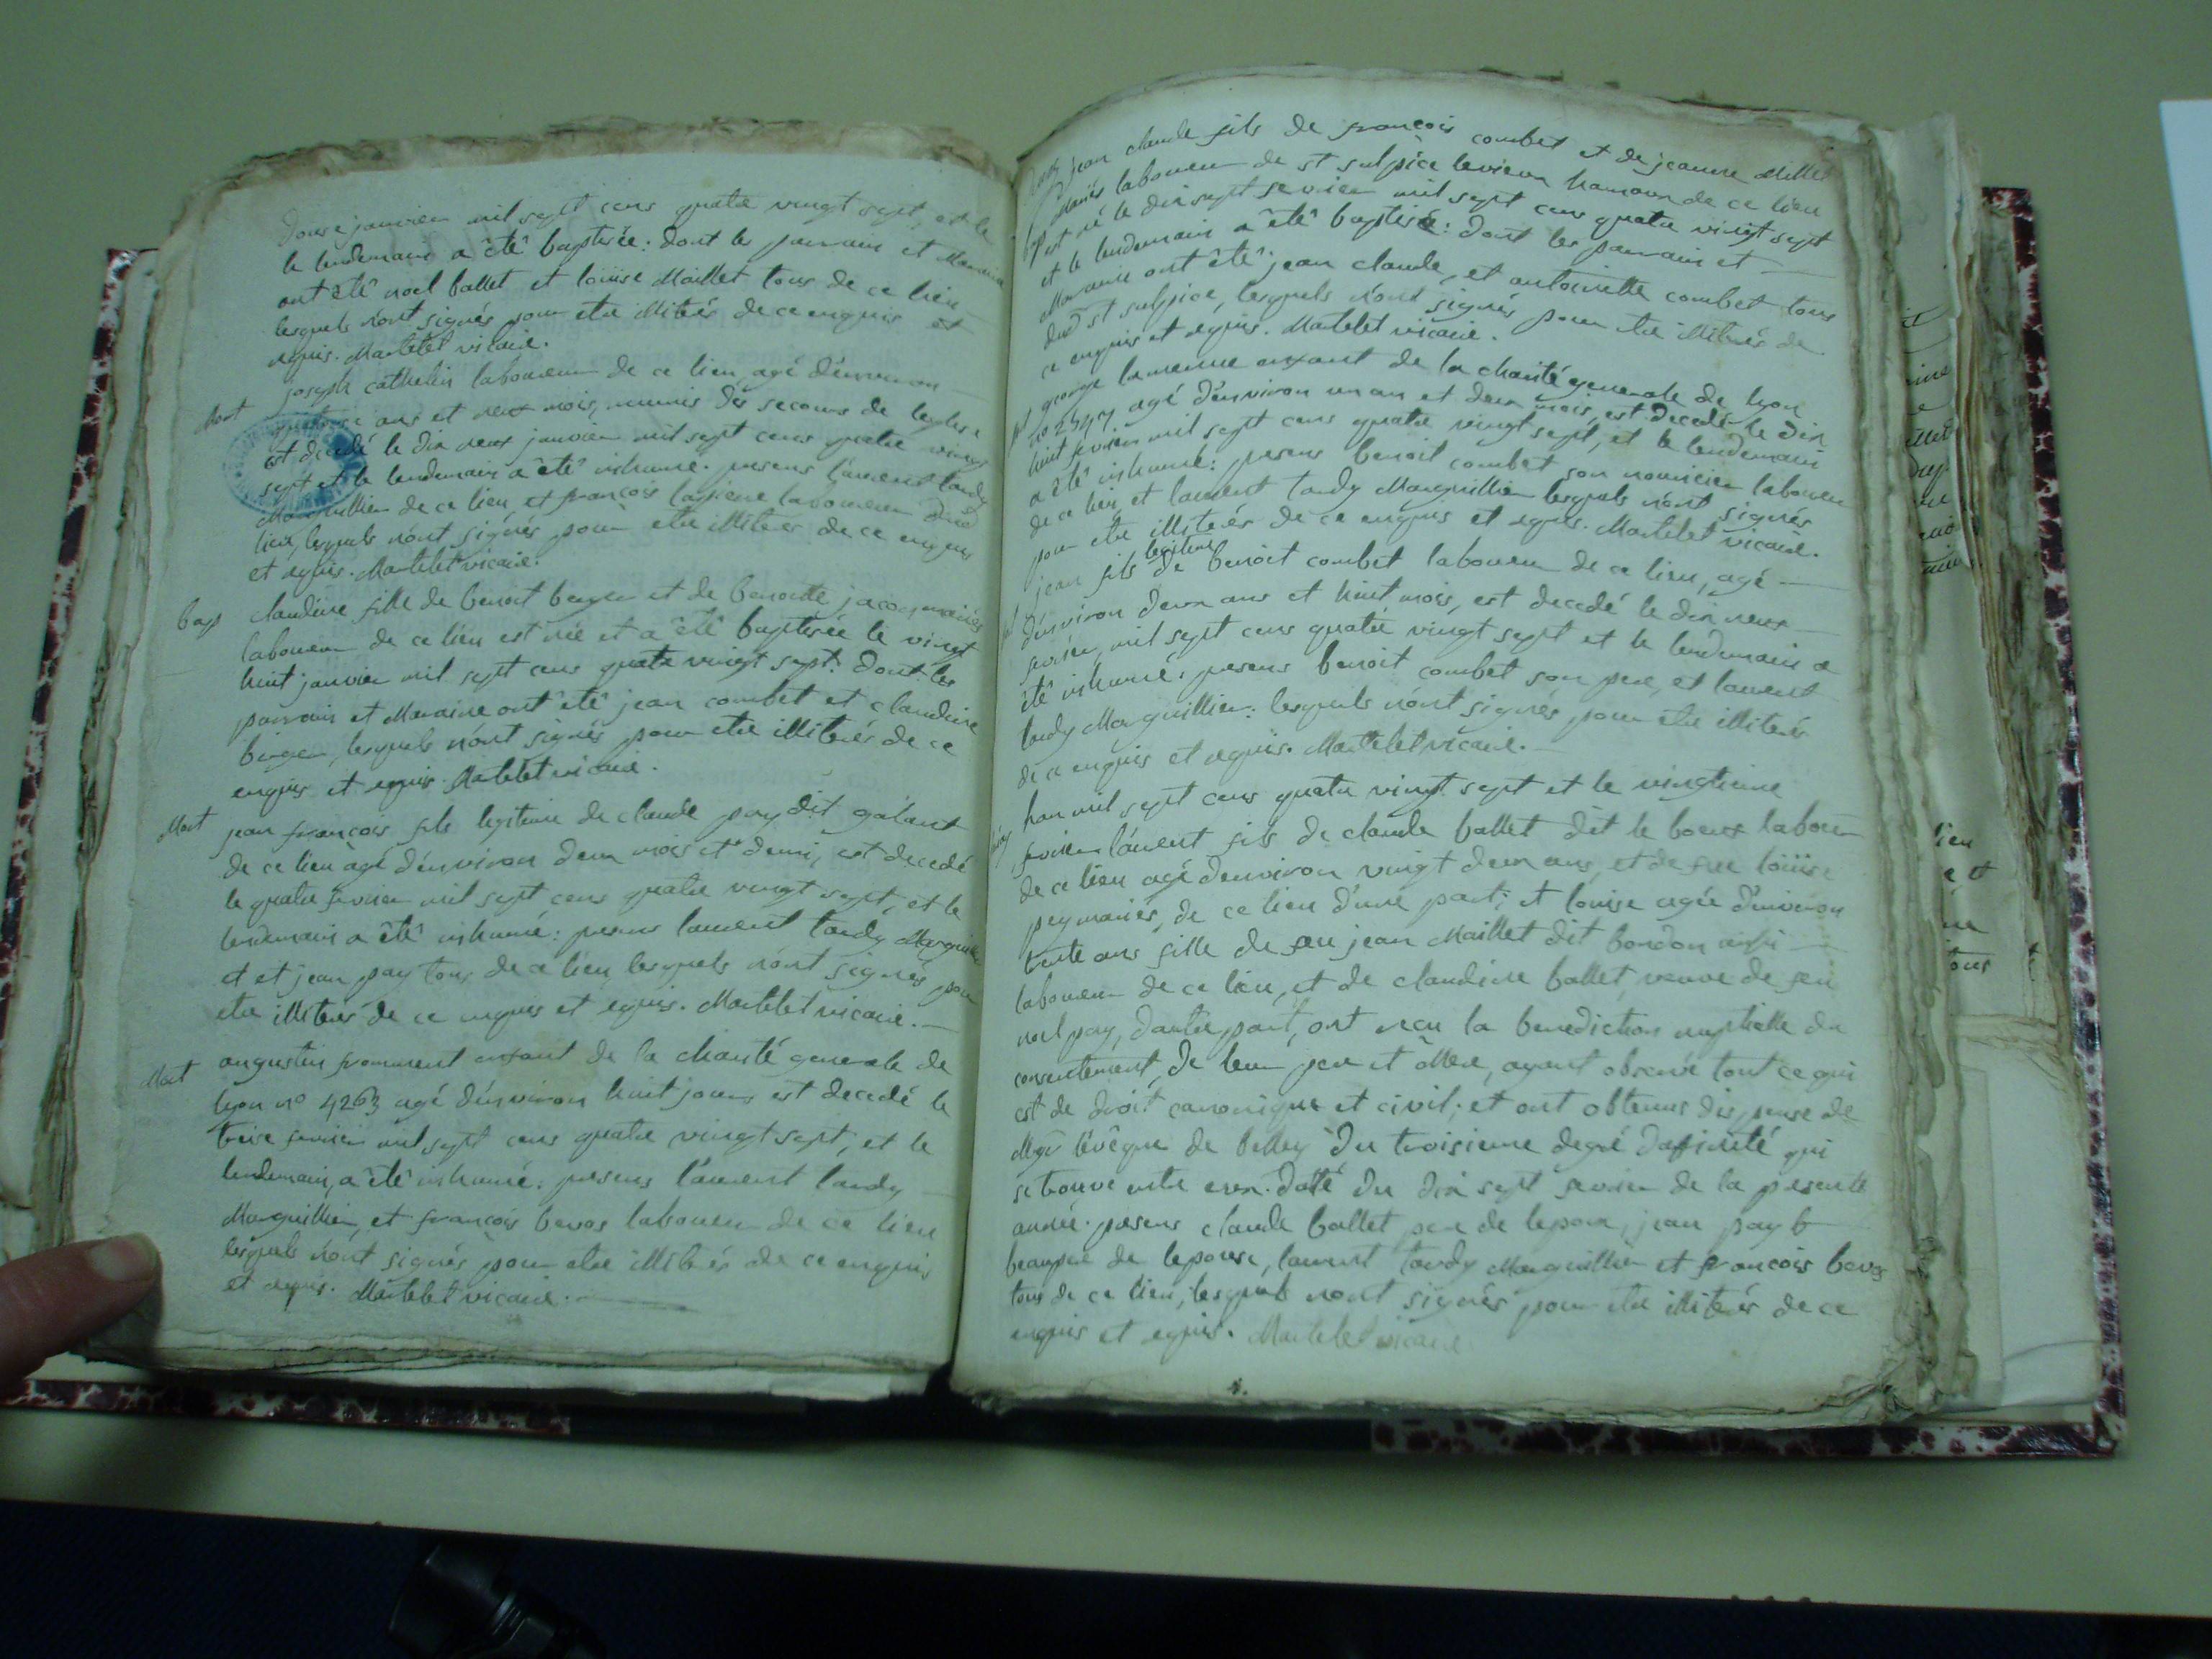 Douse janvier mil sept cens quatre vingt sept, et le
le lendemain a êtê baptisée: dont les parrain et Maraine
ont êtê noel ballet et loüise Maillet tous de ce lieu
lesquels n'ont signés pour etre illitérés de ce enquis et
requis. Martelet vicaire.
Mort
joseph cathelin laboureur de ce lieu, agé d'environ
ans et neuf mois, munis des secours de leglise
est decedé le dix neuf janvier mil sept cens quatre vingt
sept et le lendemain a êtê inhumé. presens laurent tardy
Marguillier de ce lieu, et françois laboureur dud
lieu, lesquels n'ont signés pour etre illiterés de ce enquis
et requis. Martelet vicaire.
bap
claudine fille de benoit berger et de benoite jacon mariés
laboureur de ce lieu est née et a êtê baptisée le vingt
huit janvier mil sept cens quatre vingt sept. Dont les
parrain et Maraine ont êtê jean combet et claudine
berger, lesquels n'ont signés pour etre illiterés de ce
enquis et requis. Martelet vicaire.
Mort
jean françois fils legitime de claude pay dit galant
de ce lieu àgé d'environ deux mois et demi, est decedé
le quatre fevrier mil sept cens quatre vingt sept, et le
lendemain a êtê inhumé: presens laurent tardy Marguillier
et et jean pay tous de ce lieu lesquels n'ont signés pour
etre illiterés de ce enquis et requis. Martelet vicaire.
Mort
augustin froment enfant de la charité generale de
lyon n° 4263 agé d'environ huit jours est decedé le
treise fevrier mil sept cens quatre vingt sept, et le
lendemain, a êtê inhumé: presens laurent tardy
Marguillier, et françois bevas laboureur de ce lieu
lesquels n'ont signés pour etre illiterés de ce enquis
et requis. Martelet vicaire.
bap
jean claude fils de françois combet et de jeanne Millet
Mariés laboureur de st sulpice levieux hameau de ce lieu
est né le dix sept fevrier mil sept cens quatre vingt sept
et le lendemain a êtê baptisé: dont les parrain et
Maraine ont êtê jean claude, et antoinette combet tous
dud st sulpice, lesquels n'ont signés pour etre illiterés de
ce enquis et requis. Martelet vicaire.
george enfant de la charité generale de lyon
agé d'environ un an et deux mois, est decedé le dix
huit fevrier mil sept cens quatre vingt sept, et le lendemain
a êtê inhumé: presens benoit combet son nouricier laboureur
de ce lieu, et laurent tardy Marguillier lesquels n'ont signés
pour etre illiterés de ce enquis et requis. Martelet vicaire.
jean fils legitime de benoit combet laboureur de ce lieu, agé
d'environ deux ans et huit mois, est decedé le dix neuf
fevrier, mil sept cens quatre vingt sept et le lendemain a
êtê inhumé. presens benoit combet son pere, et laurent
tardy Marguillier: lesquels n'ont signés pour etre illiterés
de ce enquis et requis. Martelet vicaire.
lan mil sept cens quatre vingt sept et le vingtieme
fevrier laurent fils de claude ballet dit le boeuf laboureur
de ce lieu agé d'environ vingt deux ans, et de feue loüise
pey mariés, de ce lieu d'une part; et louise agée d'environ
trente ans fille de feu jean Maillet dit bondon aussi
laboureur de ce lieu, et de claudine ballet, veuve de feu
noel pay, d'autre part, ont recu la benediction nuptialle du
consentement, de leur pere et Mere, ayant observé tout ce qui
est de droit canonique et civil; et ont obtenus dispense de
Mgr l'évêque de belley du troisieme degré d'affinité qui
se trouve entre eux. Daté du dix sept fevrier de la presente
année. presens claude ballet pere de lepoux, jean pay b
beaupere de lepouse, laurent tardy Marguillier et françois bevas
tous de ce lieu, lesquels nont signés pour etre illiterés de ce
enquis et requis. Martelet vicaire